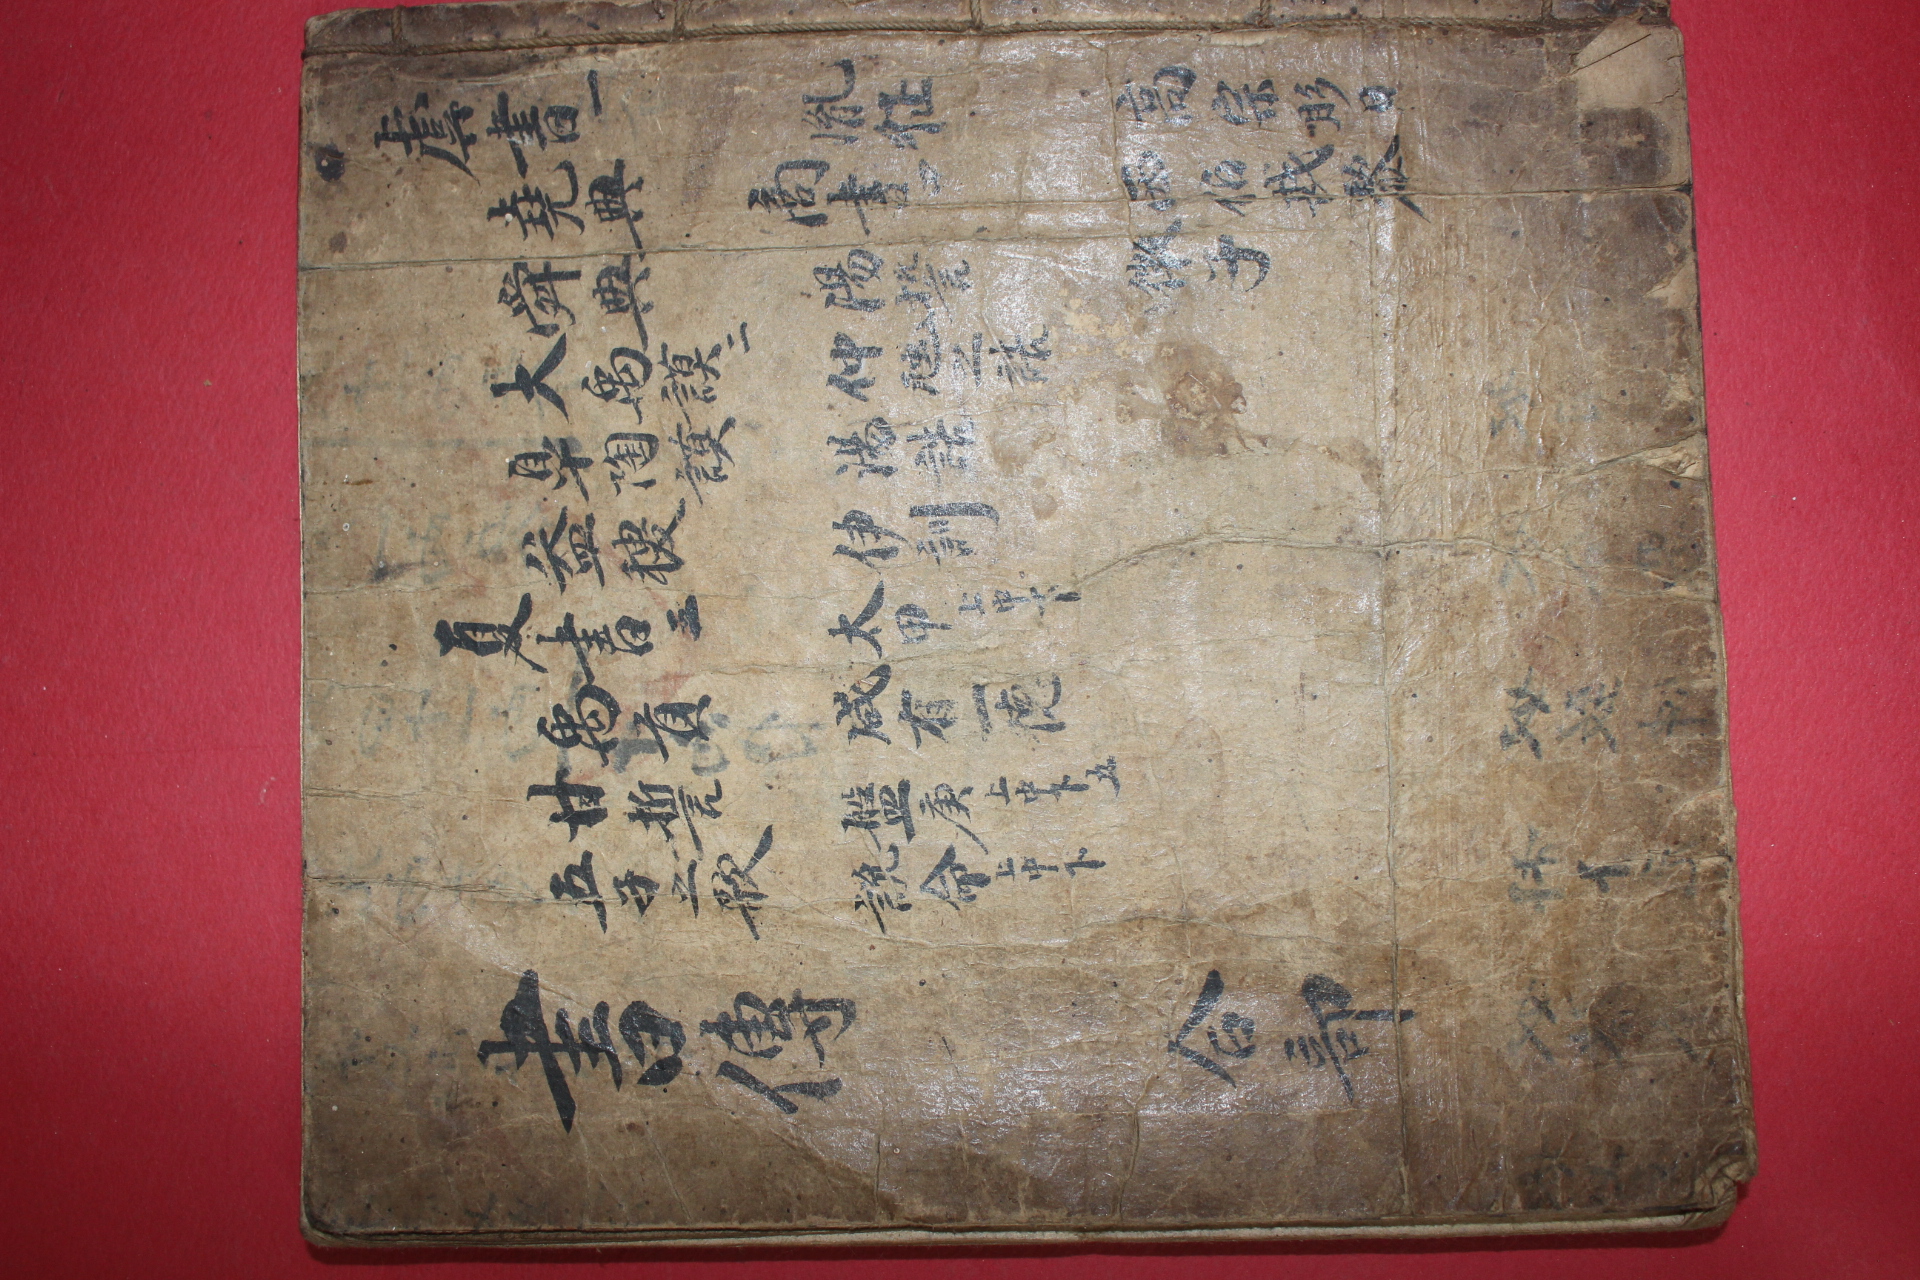 虞書一
堯典
舜典
大禹謨二
皐陶謨
益稷
夏書三
禹貢
甘誓
五子之歌
胤征
商書四
湯誓
仲虺之誥
湯誥
伊訓
太甲上中下
咸有一徳
盤庚上中下五
說命上中下
高宗肜日
西伯戡黎
微子
書傳 合部